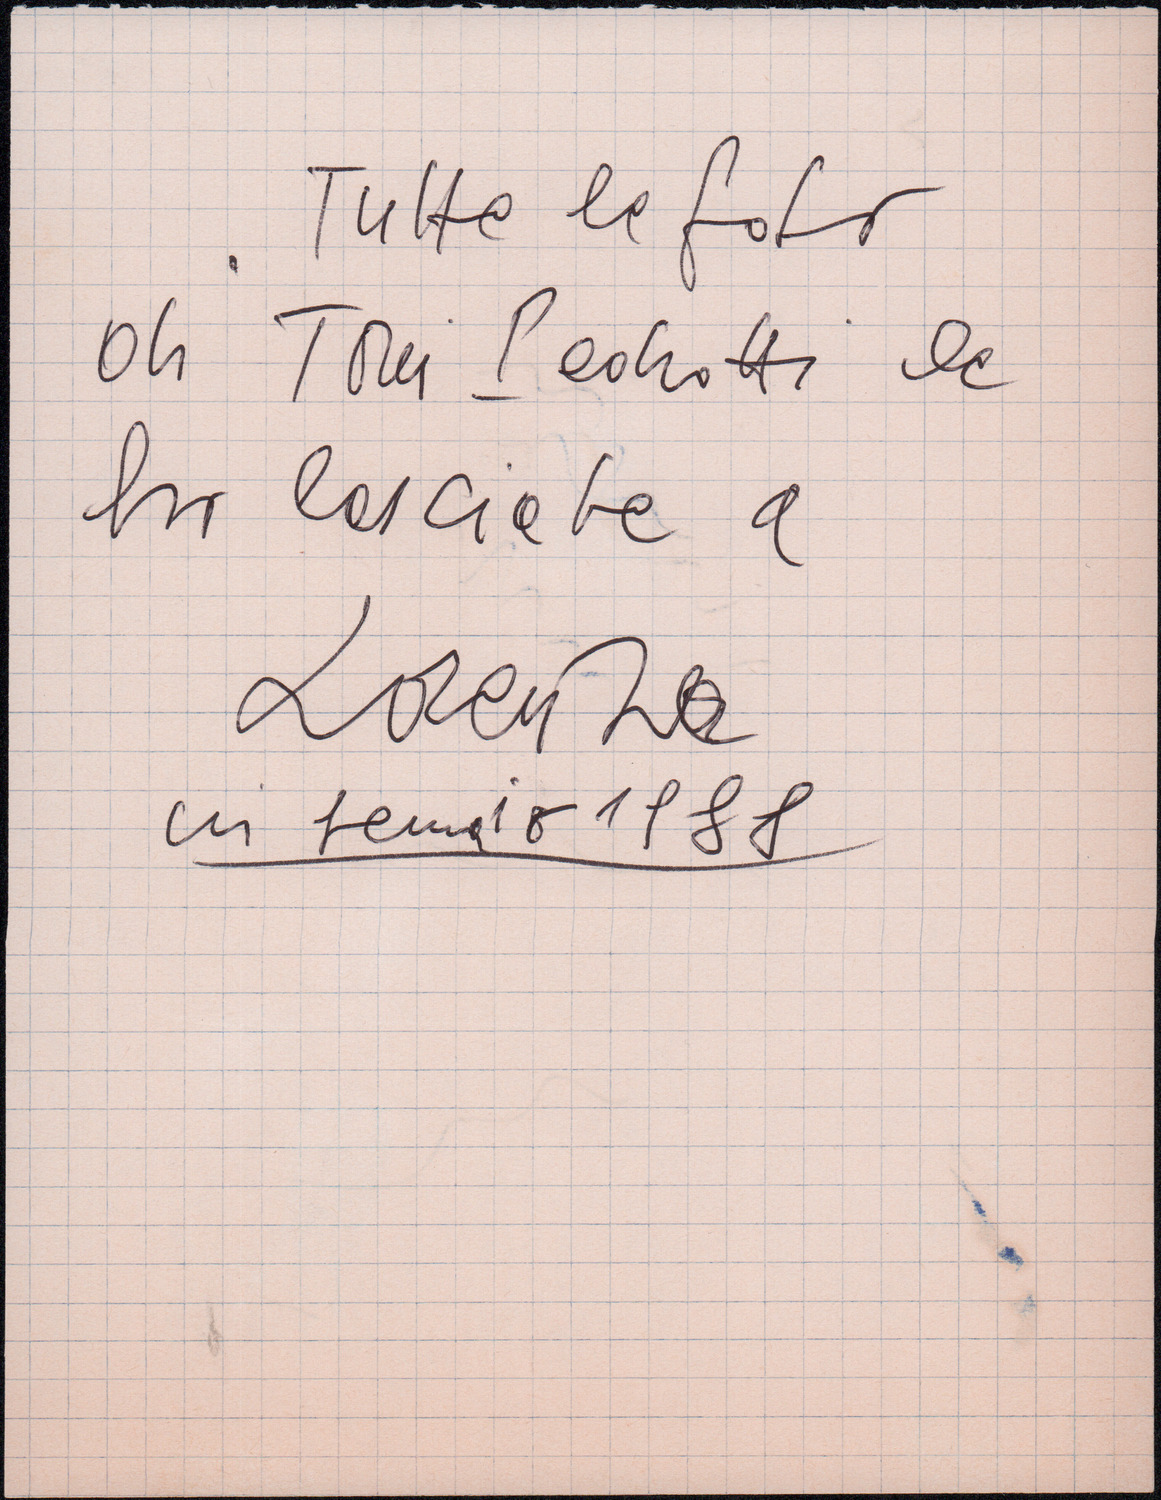 Tutte le foto
di Toni Pedrotti le
ho lasciate a
Lorenza
in gennaio 1988